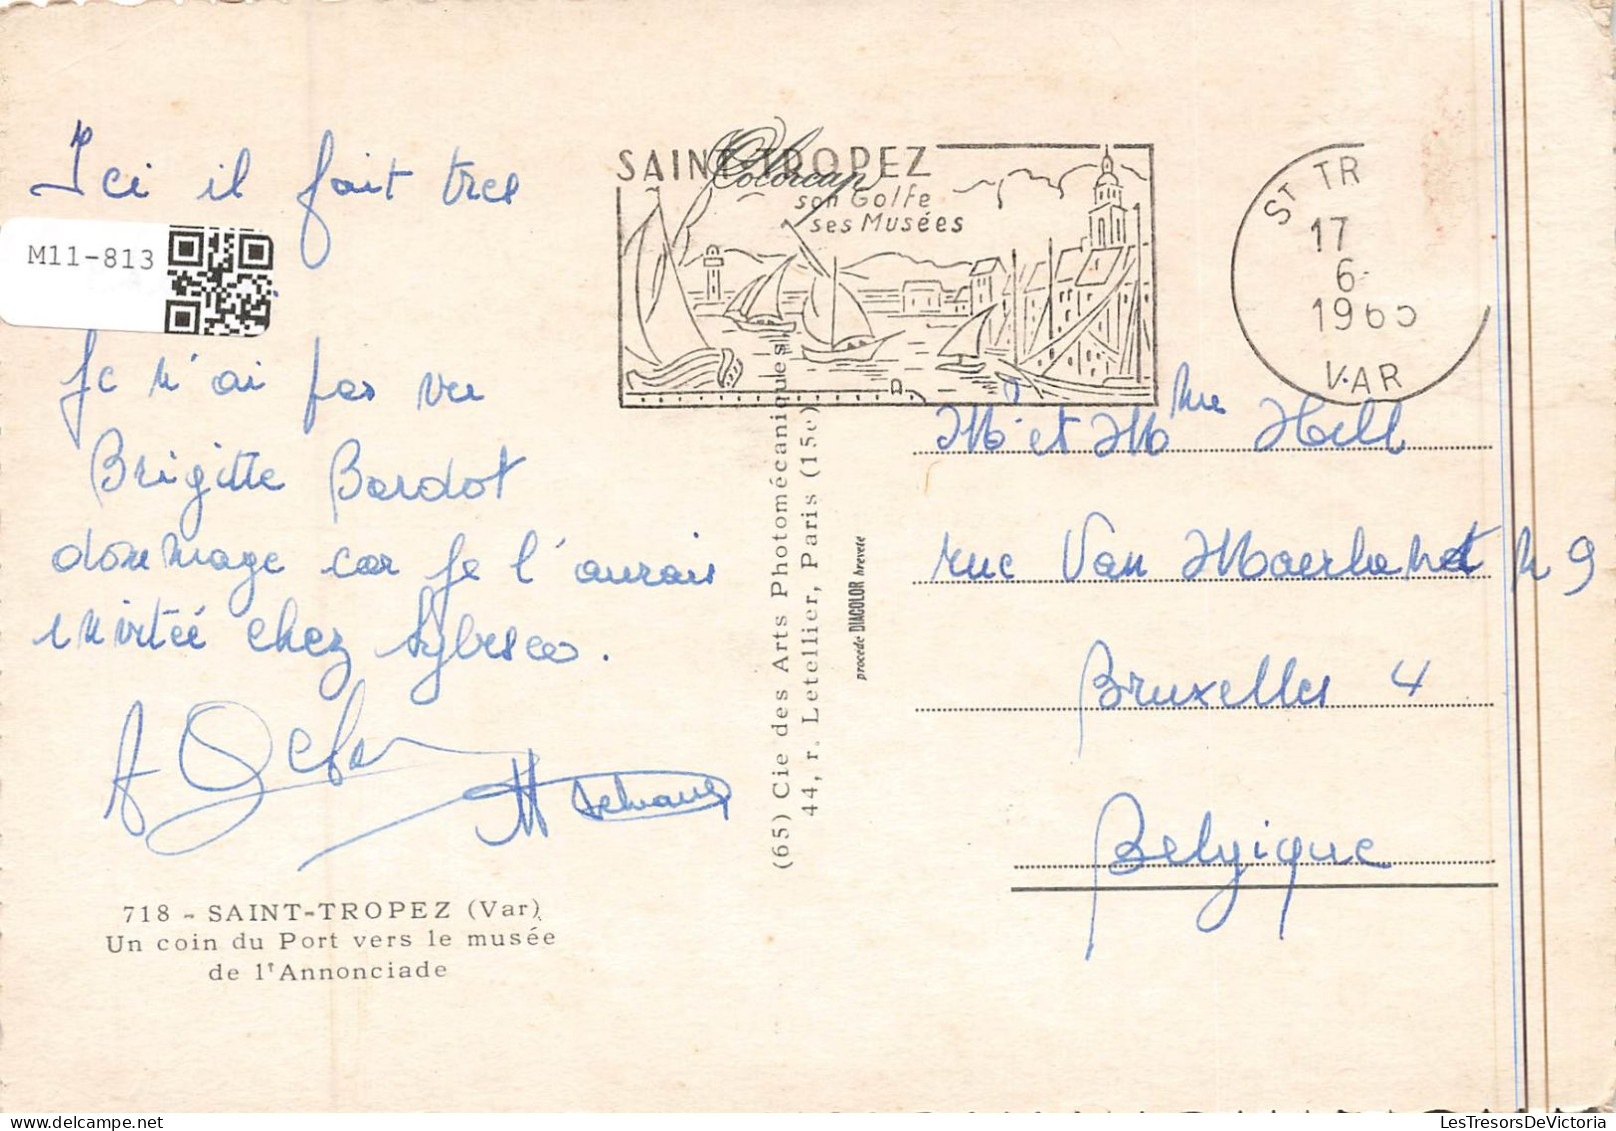 Ici il fait tres
M11-813
Je n'ai pas vu
Brigitte Bardot
dommage car je l'aurais
invitée chez
718 - SAINT-TROPEZ (Var)
Un coin du Port vers le musée
de l'Annonciade
SAINT-TROPEZ
Colorcap
son Golfe
ses Musées
ST TR
17
6
196
VAR
(65) Cie des Arts Photomécaniques
44, r. Letellier, Paris (15e)
procédé DIACOLOR breveté
Mr et Mme Hell
rue Van Maerlant n 9
Bruxelles 4
Belgique
LesTresorsDeVictoria.com